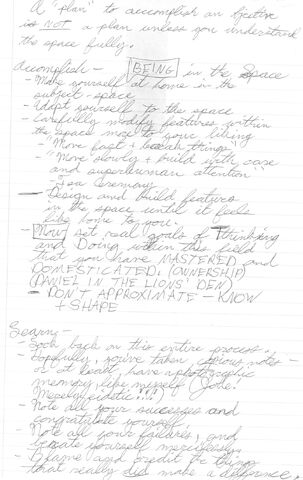 A "plan" to accomplish an
is NOT a plan unless you understand
the space fully.
Accomplish - BEING in the Space
- Make yourself at home in the
subject-space
- Adapt yourself to the space
- Carefully modify features within
the space more to your liking
- "Move fast + break things"
- "More slowly + build with care
and superhuman attention"
- Tea Ceremony
- Design and Build features
in the space until it feels
like home to you.
- Now set real goals of Thinking
and Doing within this field
that you have MASTERED and
DOMESTICATED. (OWNERSHIP)
(DANIEL IN THE LIONS' DEN)
- DON'T APPROXIMATE - KNOW
+ SHAPE
Learn -
- Look back on this entire process.
- Hopefully, you've taken copious notes -
or at least, have a photographic
memory like myself (Joke:
eidetic!!!)
- Note all your successes and
congratulate yourself
- Note all your failures, and
yourself mercilessly.
- Blame and credit the things
that really did make a difference.